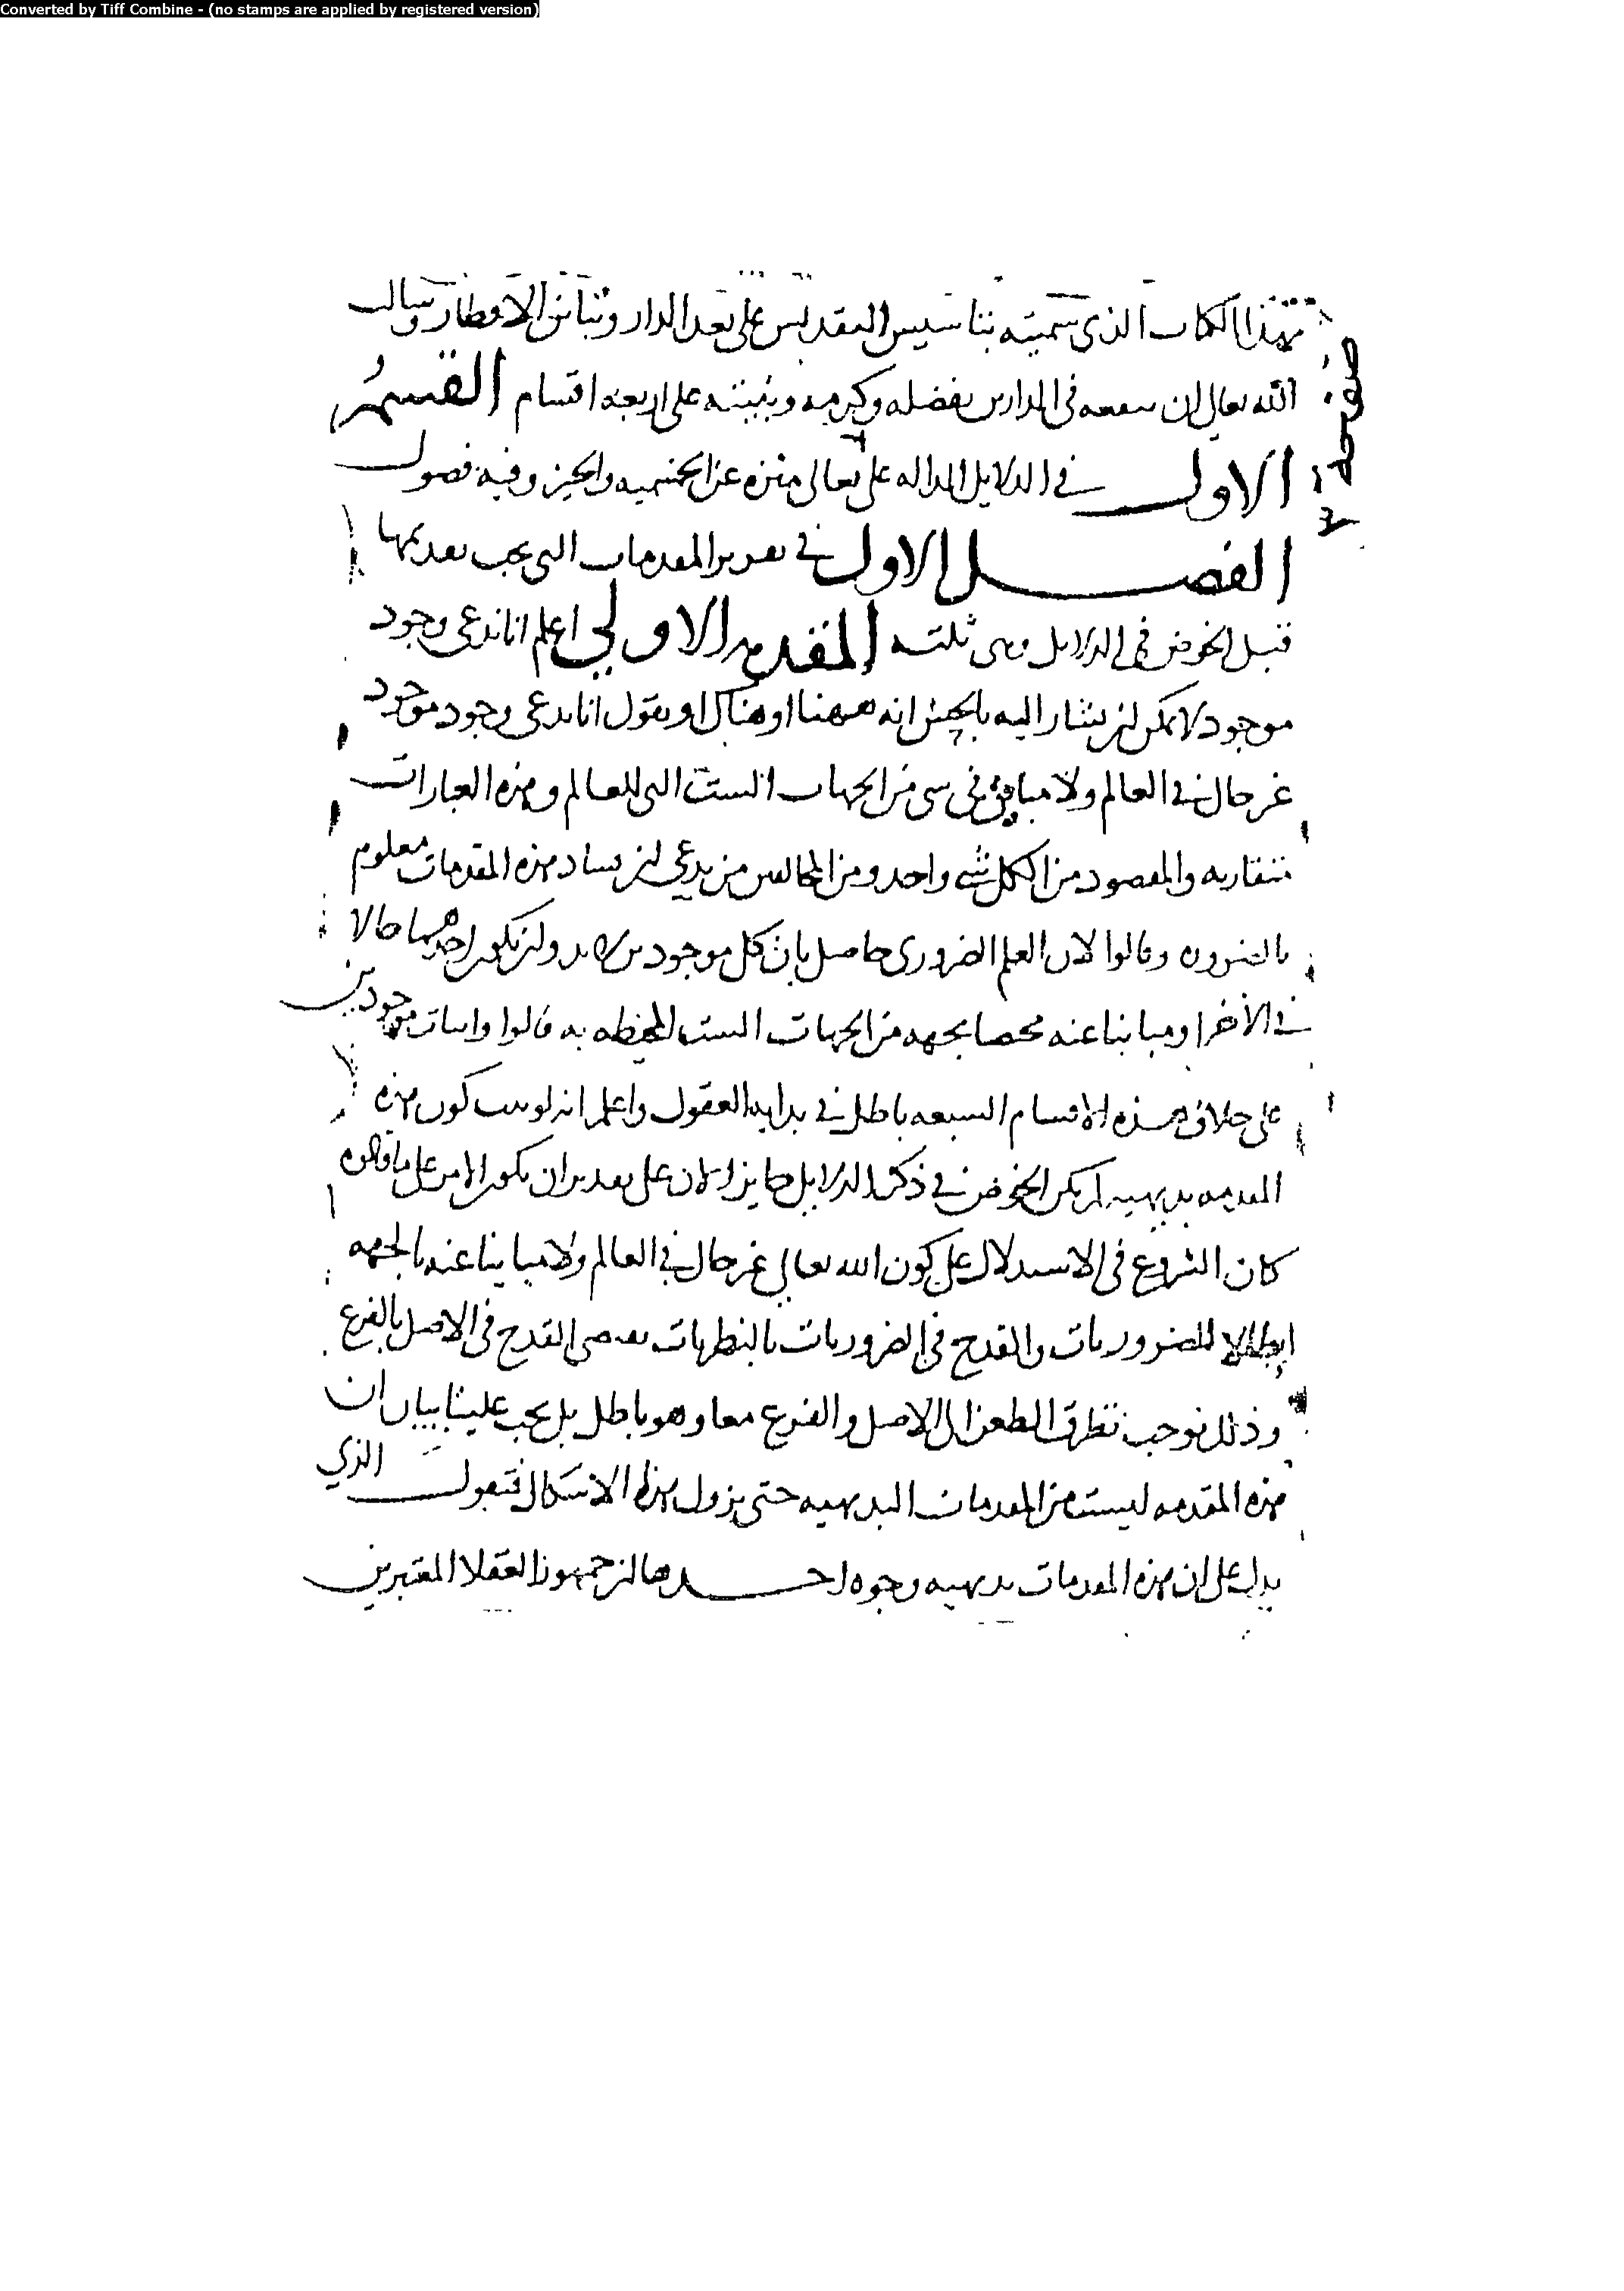 Converted by Tiff Combine - (no stamps are applied by registered version)
بهذا الكتاب الذى سميته بتاسيس التقديس على بعد الدار وتباين الاقطار وسالت
الله تعالى ان ينفعه فى الدارين بفضله وكرمه ورتبته على اربعه اقسام القسم
الاول فى الدلايل الداله على تعالى منزه عن الجسميه والحيز وفيه فصول
الفصل الاول فى تقرير المقدمات التى يجب تقديمها
قبل الخوض فى الدلايل وهى ثلثه المقدمه الاولى اعلم انا ندعى وجود
موجود لا يمكن ان يشار اليه بالحس انه ههنا او هناك او نقول انا ندعى وجود موجود
غير حال فى العالم ولا مباين فى شى من الجهات الست التى للعالم وهذه العبارات
متقاربه والمقصود من الكل شى واحد ومن المخالفين من يدعى ان فساد هذه المقدمات معلوم
بالضروره وقالوا لان العلم الضرورى حاصل بان كل موجودين لابد وان يكون احدهما حالا
فى الاخر او مباينا عنه مختصا بجهه من الجهات الست المحيطه به قالوا واثبات موجودين
على خلاف هذه الاقسام السبعه باطل فى بدايه العقول واعلم انه لو ثبت كون هذه
المقدمه بديهيه لم يكن الخوض فى ذكر الدلايل جايزا لان على تقدير ان يكون الامر على ما قالوه
كان الشروع فى الاستدلال على كون الله تعالى غير حال فى العالم ولا مباينا عنه بالجهه
ابطالا للضروريات والقدح فى الضروريات بالنظريات يقتضى القدح فى الاصل بالفرع
وذلك يوجب تطرق الطعن الى الاصل والفرع معا وهو باطل بل يجب علينا بيان ان
هذه المقدمه ليست من المقدمات البديهيه حتى يزول هذا الاشكال فنقول الذي
يدل على ان هذه المقدمات بديهيه وجوه احدها ان جمهور العقلا المعتبرين